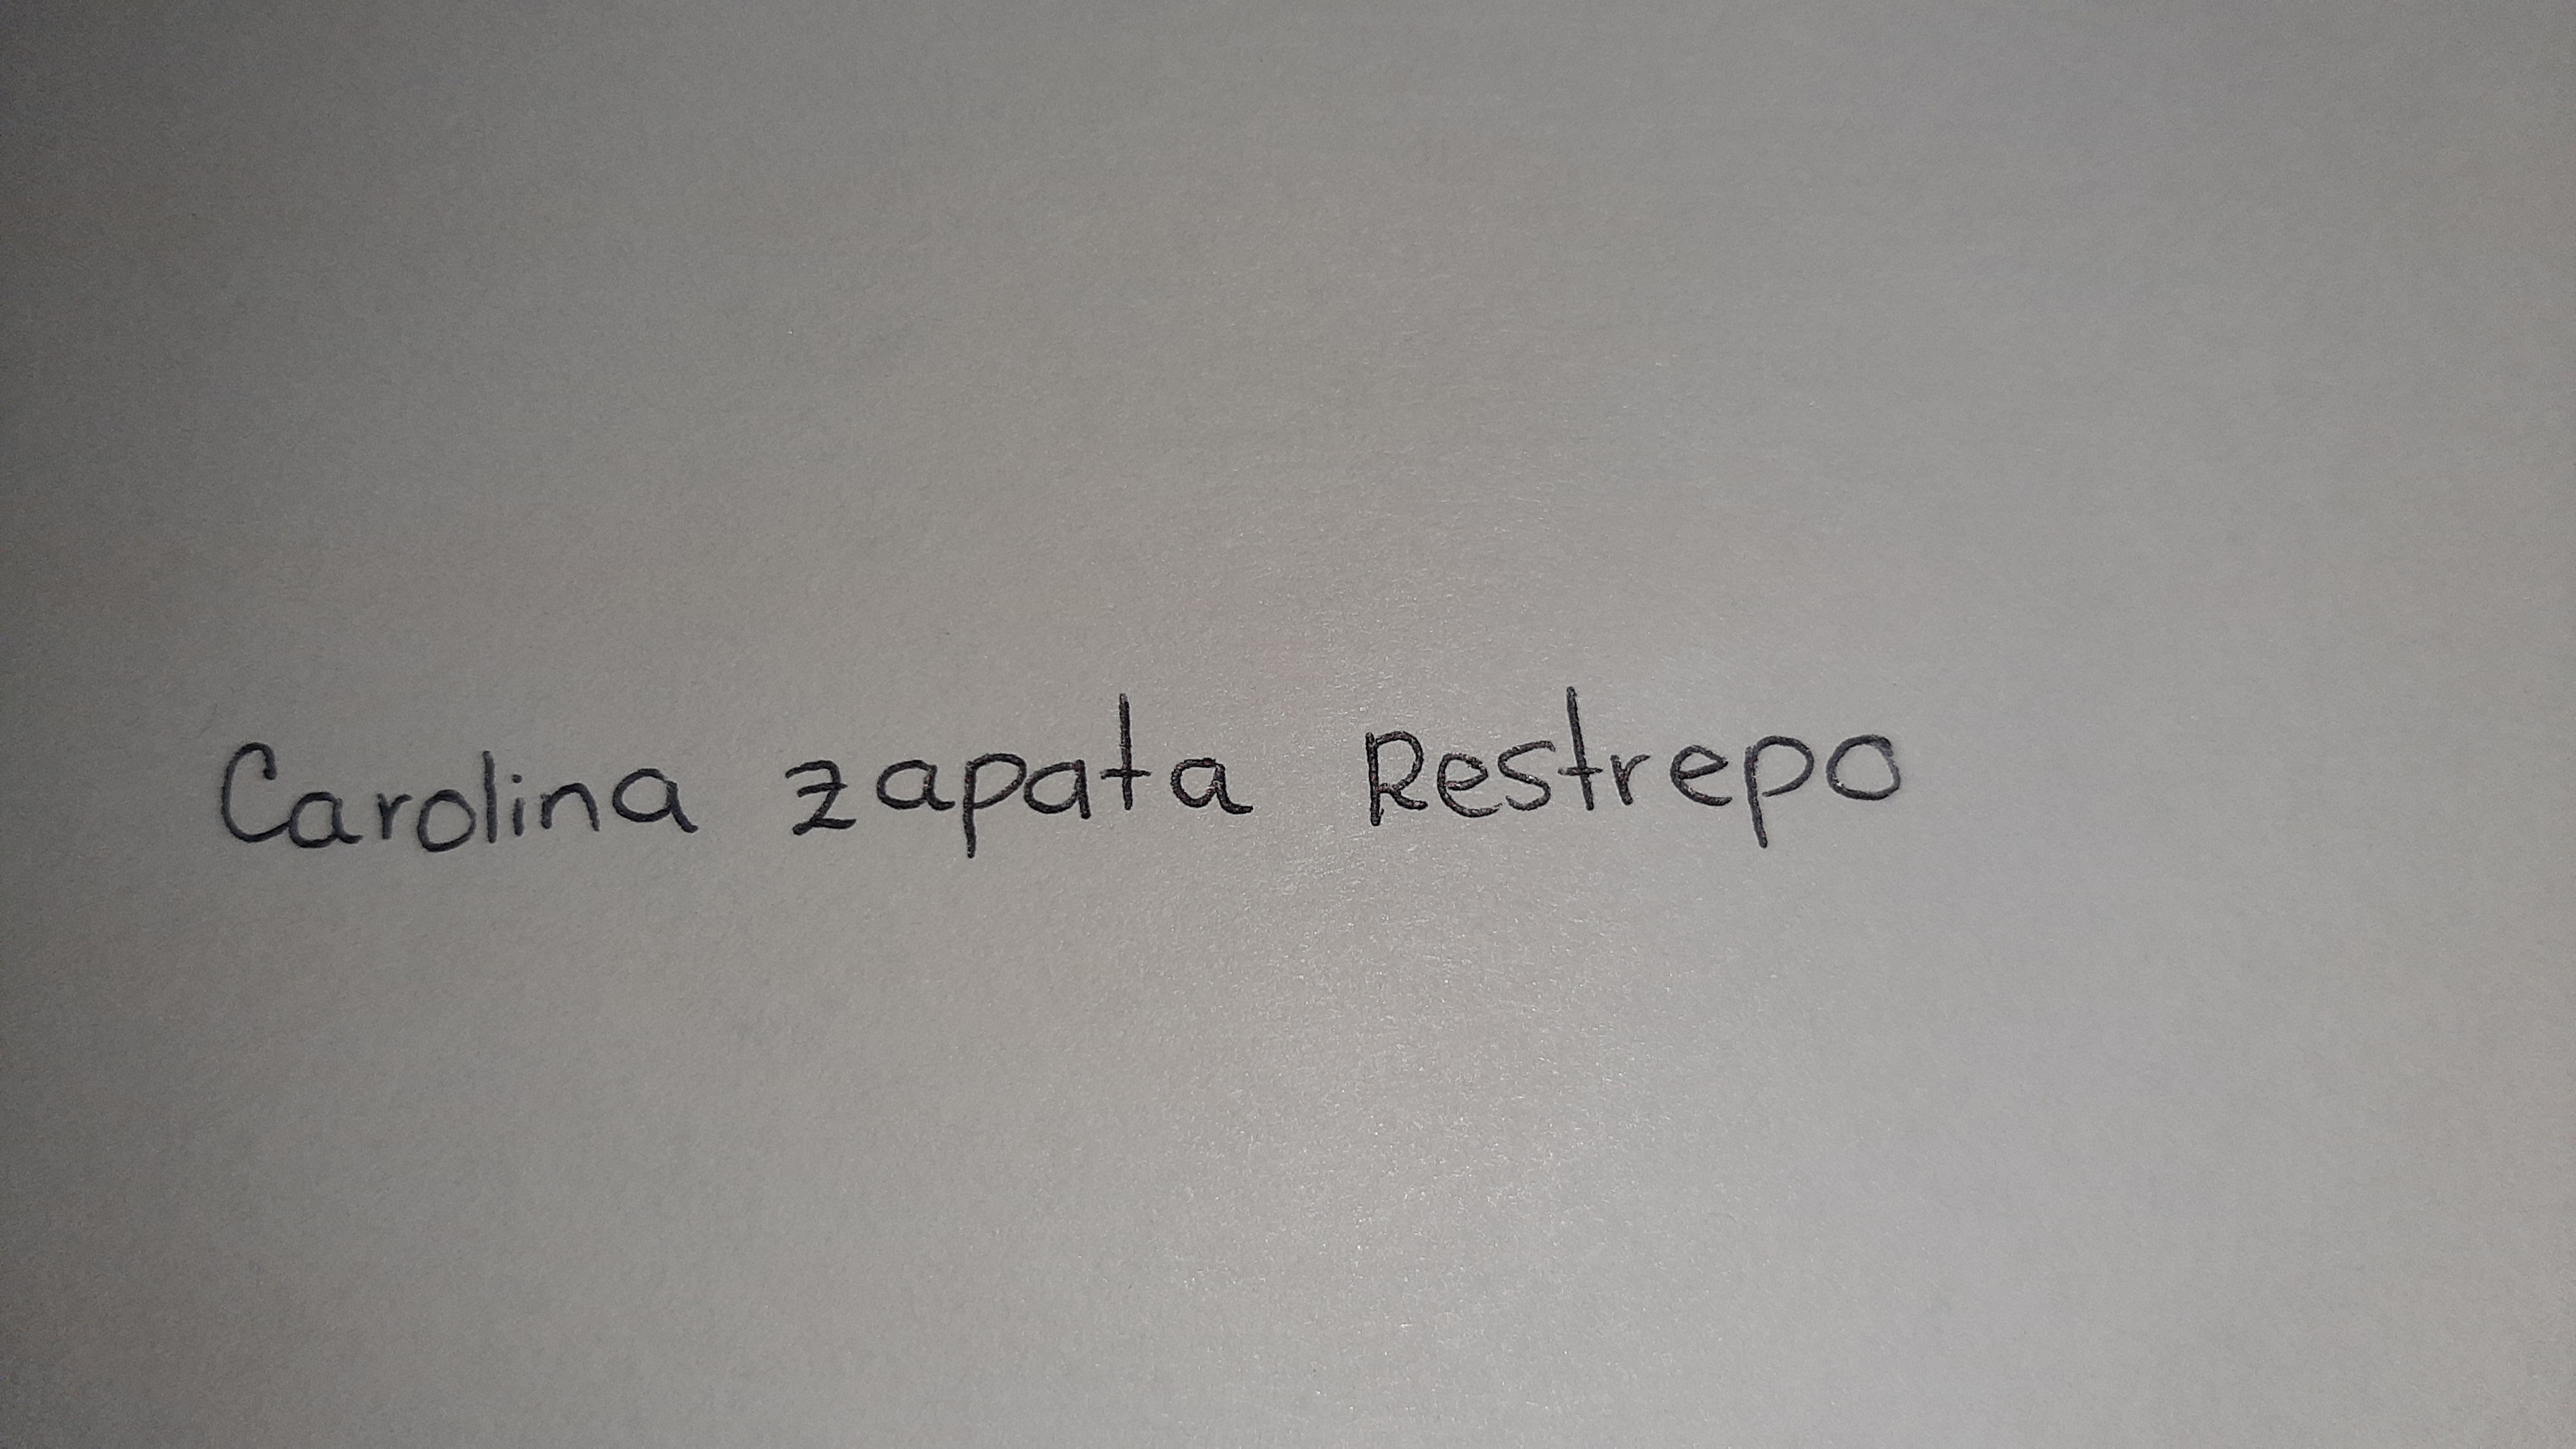 Carolina zapata Restrepo